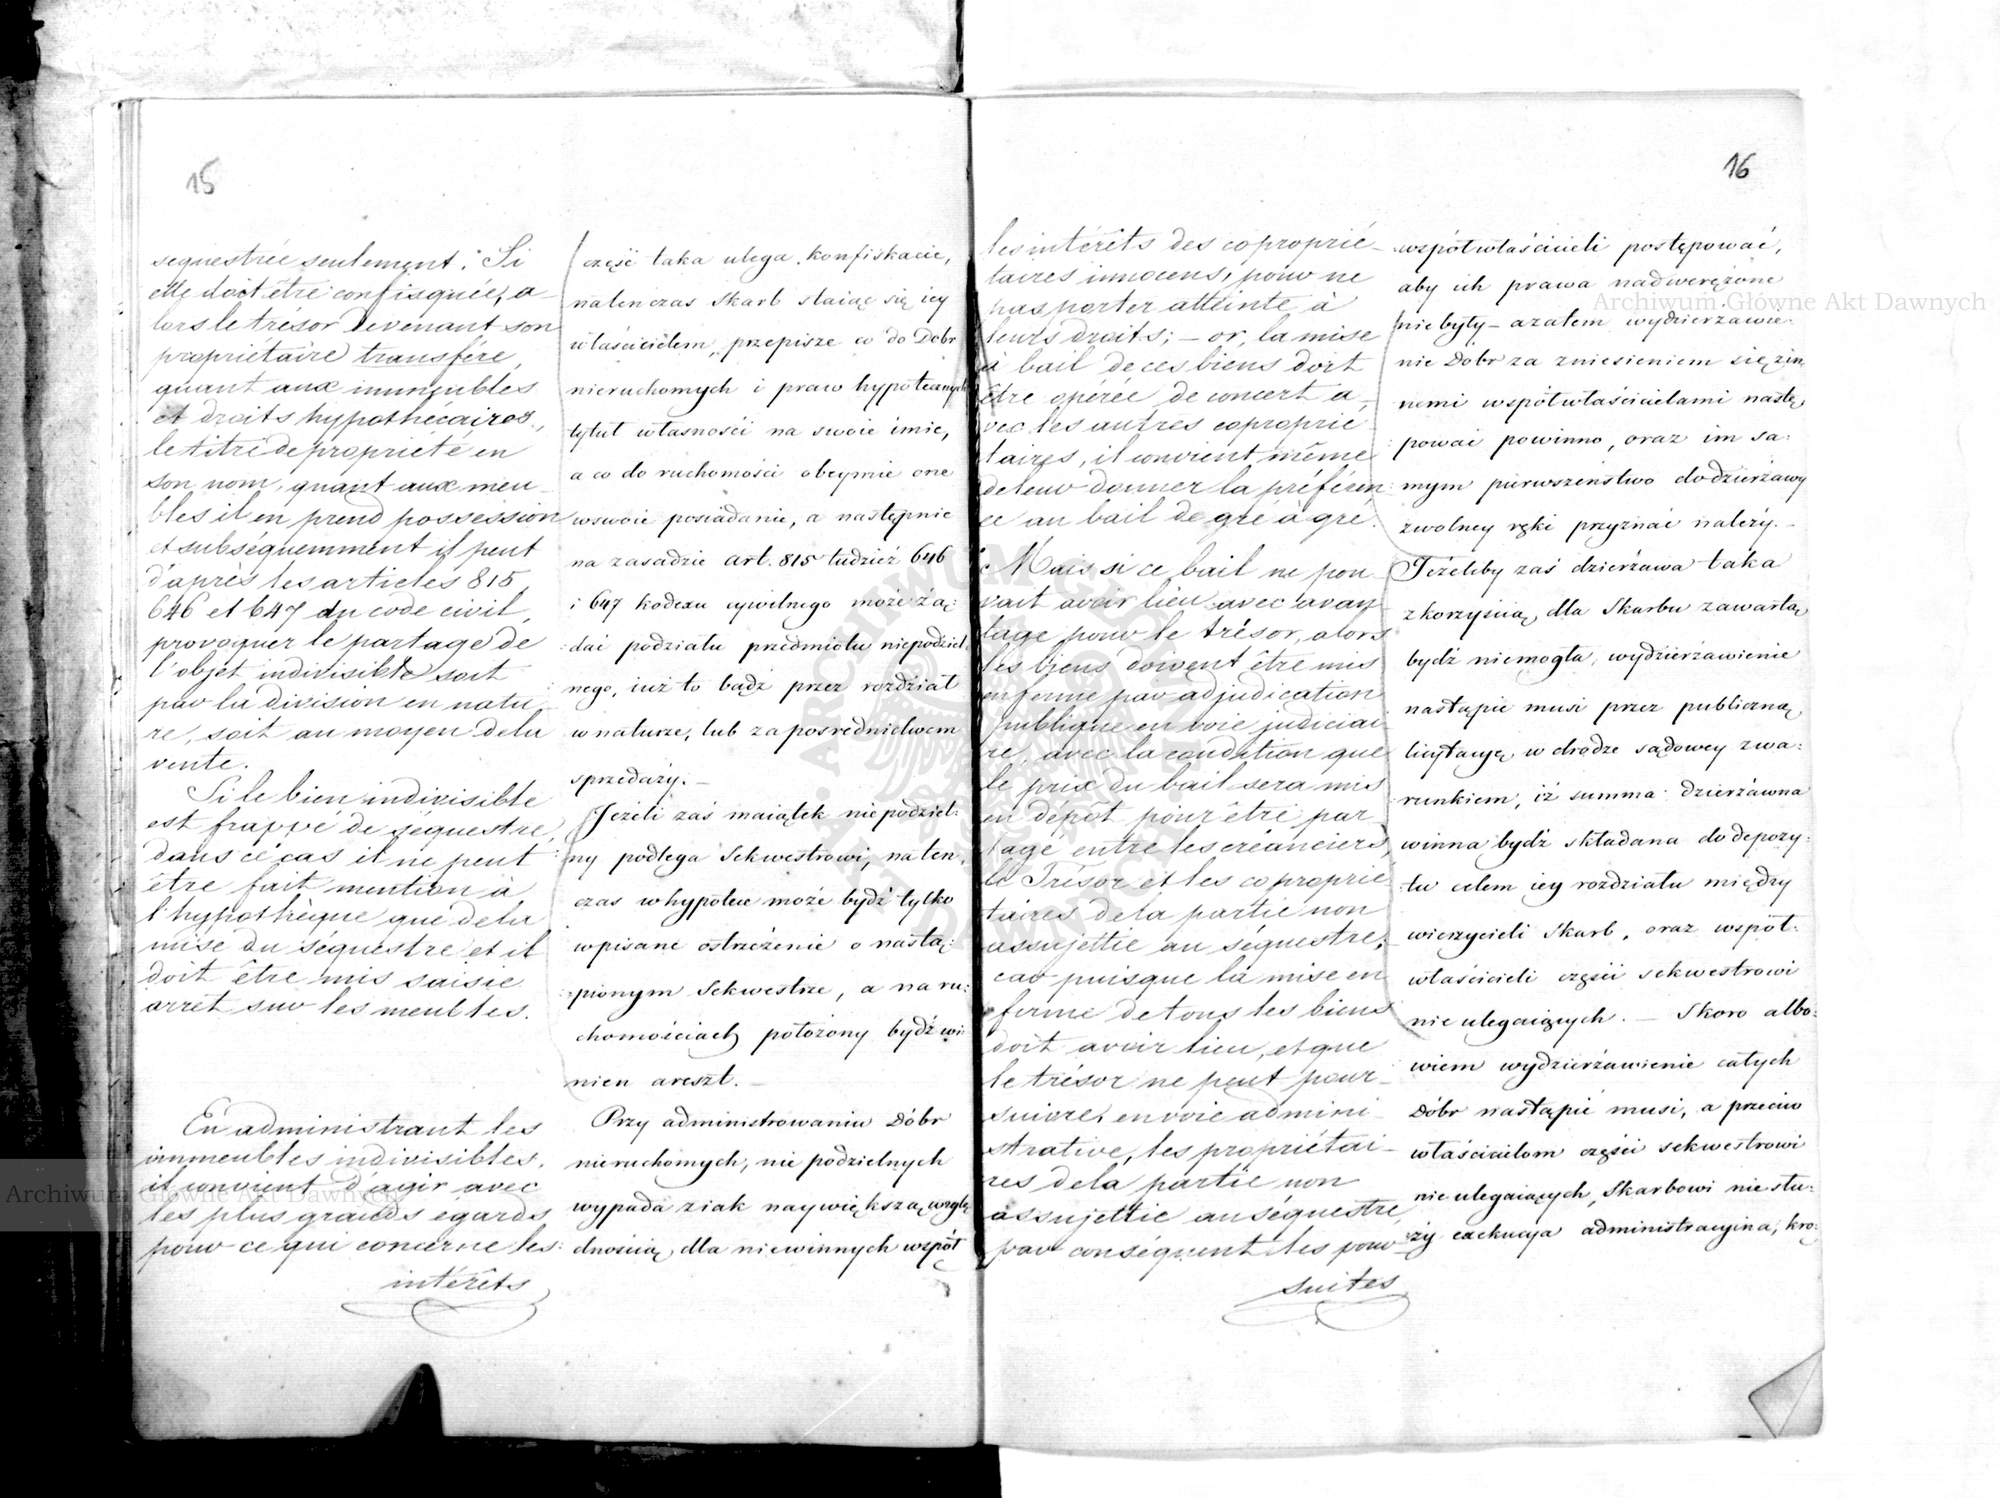 15
sequestrée seulement. Si
elle doit être confisquée, a-
lors le trésor devenant son
propriétaire transfére,
quant aux immeubles
et droits hypothecaires,
le titre de propriété en
son nom, quant aux meu-
bles il en prend possession
et subséquemment il peut
d'après les articles 815,
646 et 647 du code civil,
provoquer le partage de
l'objet indivisible soit
par la division en natu-
re, soit au moyen de la
vente.
Si le bien indivisible
est frappé de séquestre,
dans ce cas il ne peut
être fait mention à
l'hypothèque que de la
mise du séquestre et il
doit être mis saisie
arrêt sur les meubles.
En administrant les
immeubles indivisibles,
il convient d'agir avec
les plus grands egards
pour ce qui concerne les
intérêts
część taka ulega konfiskacie,
natenczas Skarb staiąc się iey
właścicielem, przepisze co do Dobr
nieruchomych i praw hypotecznych
tytuł własności na swoie imie,
a co do ruchomości obeymie one
w swoie posiadanie, a następnie
na zasadzie art. 815 tudzież 646
i 647 kodexu cywilnego może żą:
dać podziału przedmiotu niepodziel:
nego, iuż to bądź przez rozdział
w naturze, lub za posrednictwem
sprzedaży. —
Jeżeli zaś maiątek niepodziel:
ny podlega Sekwestrowi, naten:
czas w hypotece może bydź tylko
wpisane ostrzeżenie o nastą:
pionym Sekwestrze, a na ru:
chomościach położony bydź wi:
nien areszt. —
Przy administrowaniu Dóbr
nieruchomych, nie podzielnych
wypada ziak naywiększą wzglę
dnością dla niewinnych współ
16
les intérêts des coproprié-
taires innocens, pour ne
pas porter atteinte à
leurs droits; — or, la mise
à bail de ces biens doit
être opérée de concert a-
vec les autres coproprié-
taires, il convient même
de leur donner la préféren-
ce au bail de gré à gré.
Mais si ce bail ne pou-
vait avoir lieu avec avan-
tage pour le trésor, alors
les biens doivent être mis
en ferme par adjudication
publique en voie judiciai-
re, avec la condition que
le prix du bail sera mis
en dépôt pour être par-
tagé entre les créanciers,
le Trésor et les coproprié-
taires de la partie non
assujettie au séquestre,
car puisque la mise en
ferme de tous les biens
doit avoir lieu, et que
le trésor ne peut pour-
suivre, en voie admini-
strative, les propriétai-
res de la partie non
assujettie au séquestre,
par conséquent les pour-
suites
współwłaścicieli postępować,
aby ich prawa nadwerężone
nie były — azatem wydzierżawie:
nie Dobr za zniesieniem się z in:
nemi współwłaścicielami nastę:
pować powinno, oraz im sa:
mym pierwszeństwo do dzierżawy
z wolney ręki przyznać należy. —
Jeżeliby zaś dzierżawa taka
z korzyścią dla Skarbu zawartą
bydź niemogła, wydzierżawienie
nastąpić musi przez publiczną
licytacyą w drodze sądowey z wa:
runkiem, iż summa dzierżawna
winna bydź składana do depozy:
tu celem iey rozdziału między
wierzycieli Skarb, oraz współ:
właścicieli części sekwestrowi
nie ulegaiących. — Skoro albo:
wiem wydzierżawienie całych
Dóbr nastąpić musi, a przeciw
właścicielom części sekwestrowi
nie ulegaiących, Skarbowi nie słu:
ży exekucya administracyina, kro:
Archiwum Główne Akt Dawnych
Archiwum Główne Akt Dawnych